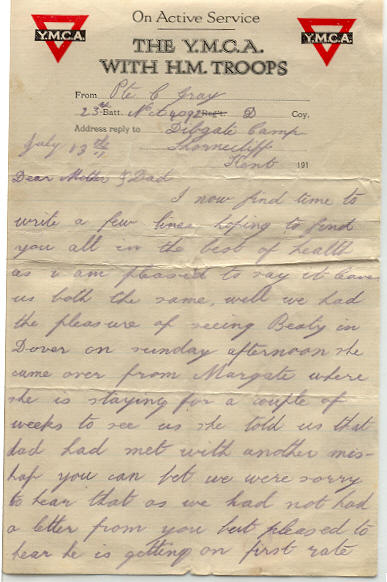 On Active Service
Y.M.C.A. THE Y.M.C.A. Y.M.C.A.
WITH H.M. TROOPS
From Pte C Gray
23rd Batt. No 4092 Reg't. D Coy.
Address reply to Dibgate Camp
July 13th Shorncliff
Kent 191
Dear Mother & Dad
I now find time to
write a few lines hoping to find
you all in the best of health
as i am pleased to say it leave
us both the same, well we had
the pleasure of seeing Beaty in
Dover on sunday afternoon she
came over from Margate where
she is staying for a couple of
weeks to see us she told us that
dad had met with another mis-
hap you can bet we were sorry
to hear that as we had not had
a letter from you but pleased to
hear he is getting on first rate